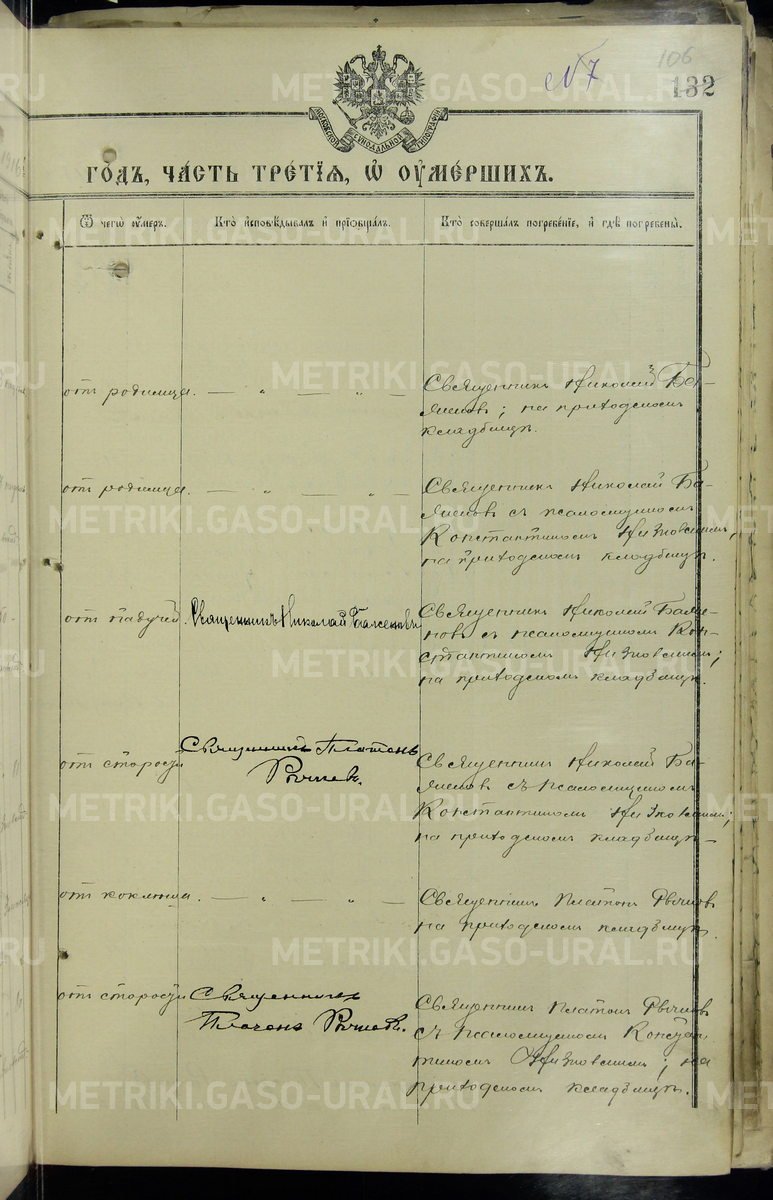 № 7
106
132
МОСКОВСКОЙ СѴНОДАЛЬНОЙ ТИПОГРАФІИ
годъ, часть третїѧ, ѡ оумершихъ.
Ѿ чегѡ оумеръ.
Кто исповѣдывалъ и прїѡбщалъ.
Кто совершалъ погребенїе, и гдѣ погребены.
отъ родимца. — „ — „ —
Священникъ Николай Ба-
женовъ; на приходскомъ
кладбищѣ.
отъ родимца. — „ — „ —
Священникъ Николай Ба-
женовъ съ псаломщикомъ
Константиномъ
на приходскомъ кладбищѣ.
отъ падучей.
Священникъ Николай Баженовъ
Священникъ Николай Баже-
новъ съ псаломщикомъ Кон-
стантиномъ
на приходскомъ кладбищѣ.
отъ старости
Священникъ Платонъ
Рычковъ.
Священникъ Николай Ба-
женовъ съ псаломщикомъ
Константиномъ
на приходскомъ кладбищѣ
отъ коклюша. — „ — „ —
Священникъ Платонъ Рычковъ
на приходскомъ кладбищѣ.
отъ старости
Священникъ
Платонъ Рычковъ.
Священникъ Платонъ Рычковъ
съ псаломщикомъ Констан-
тиномъ ; на
приходскомъ кладбищѣ.
METRIKI.GASO-URAL.RU